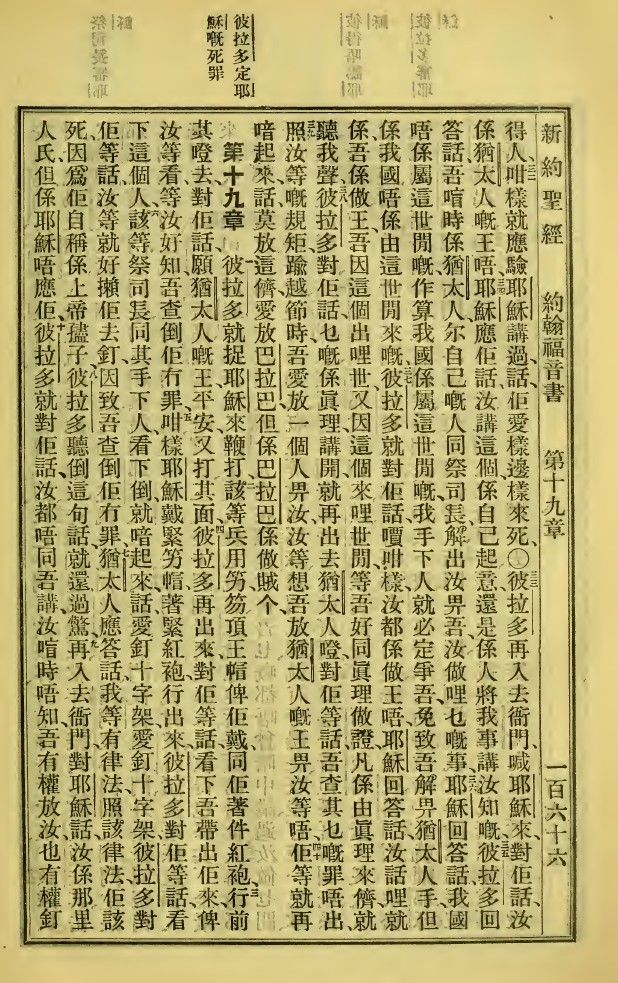 彼拉多定耶
穌嘅死罪
新約聖經 約翰福音書 第十九章 一百六十六
得人咁樣就應驗耶穌講過話佢愛樣邊樣來死〇彼拉多再入去衙門喊耶穌來、對佢話汝
係猶太人嘅王唔、耶穌應佢話汝講這個係自己起意還是係人將我事講汝知嘅、彼拉多回
答話吾喧時係猶太人尔自己嘅人同祭司長解出汝畀吾汝做哩乜嘅事、耶穌回答話我國
唔係屬這世間嘅作算我國係屬這世間嘅、我手下人就必定爭吾免致吾解畀猶太人手但
係我國唔係由這世間來嘅、彼拉多就對佢話嘪咁樣汝都係做王唔、耶穌回答話汝話哩就
係、吾係做王、吾因這個出哩世又因這個來哩世間、等吾好同眞理做證凡係由眞理來儕就
聽我聲、彼拉多對佢話乜嘅係眞理講開就再出去猶太人噔對佢等話吾查其乜嘅罪唔出
照汝等嘅規矩踰越節時、吾愛放一個人畀汝汝等想吾放猶太人嘅王畀汝等唔、佢等就再
喑起來話莫放這儕愛放巴拉巴但係巴拉巴係做賊个、
第十九章 彼拉多就捉耶穌來鞭打、該等兵用竻笏頂王帽俾佢戴、同佢著件紅袍、行前
其噔去對佢話願猶太人嘅王平安又打其面、彼拉多再出來、對佢等話看下吾帶出佢來、俾
汝等看等汝好知吾查倒佢冇罪、咁樣耶穌戴緊竻帽、著緊紅袍行出來、彼拉多對佢等話看
下這個人、該等祭司長同其手下人看下倒、就喑起來話愛釘十字架愛釘十字架、彼拉多對
佢等話、汝等就好攋佢去釘、因致吾查倒佢冇罪、猶太人應答話、我等有律法、照該律法佢該
死、因爲佢自稱係上帝孻子、彼拉多聽倒這句話、就還過驚、再入去衙門對耶穌話汝係那里
人氏但係耶穌唔應佢、彼拉多就對佢話汝都唔同吾講、汝喧時唔知、吾有權放汝、也有權釘